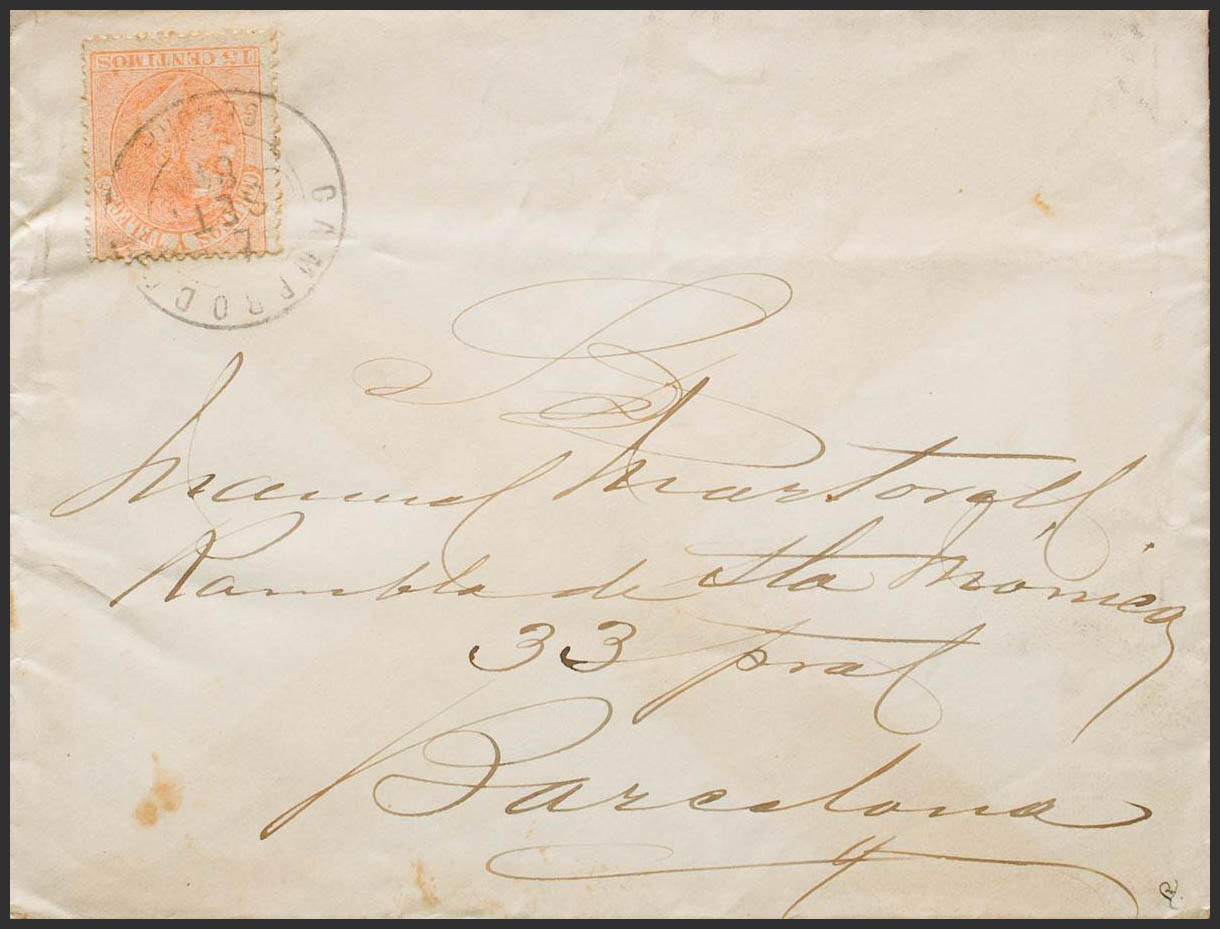 15 CENTIMOS
CORREOS Y TELEGS
CAMPRODON
SET
Manuel Martorell
Rambla de Sta Mónica,
33 pral
Barcelona